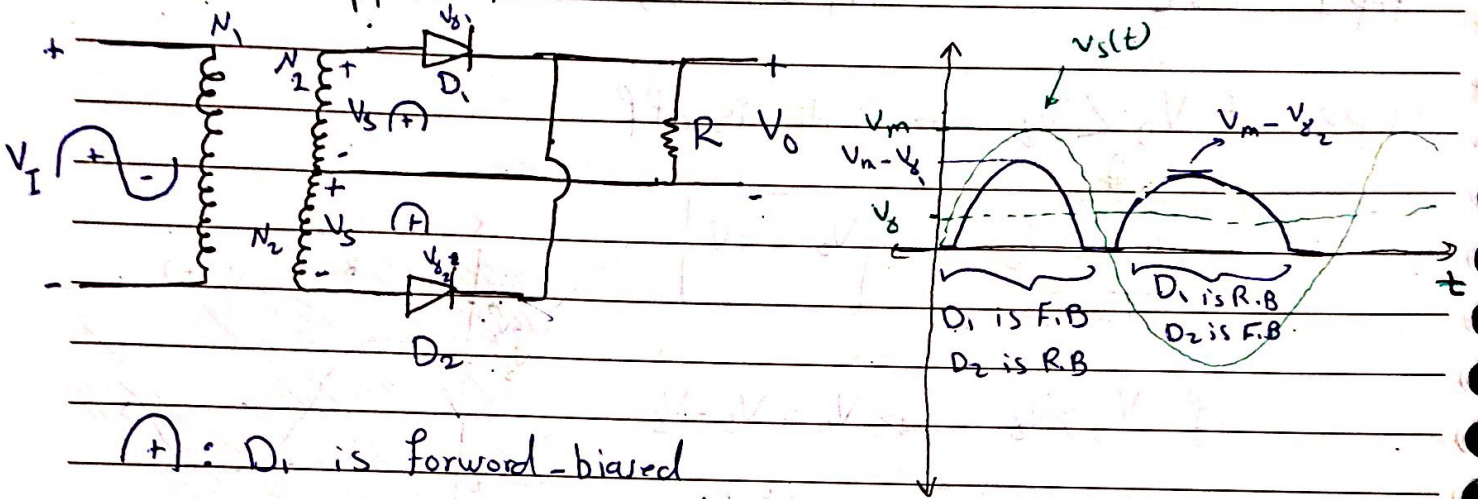 N₁
+
N₂
+
Vγ₁
D₁
+
Vₛ (+)
V_I
+
-
-
+
R
V₀
-
N₂
Vₛ
(+)
-
-
Vγ₂
D₂
vₛ(t)
Vm
Vm - Vγ₁
Vγ
Vm - Vγ₂
t
D₁ is F.B
D₂ is R.B
D₁ is R.B
D₂ is F.B.
(+) : D₁ is forword-biased